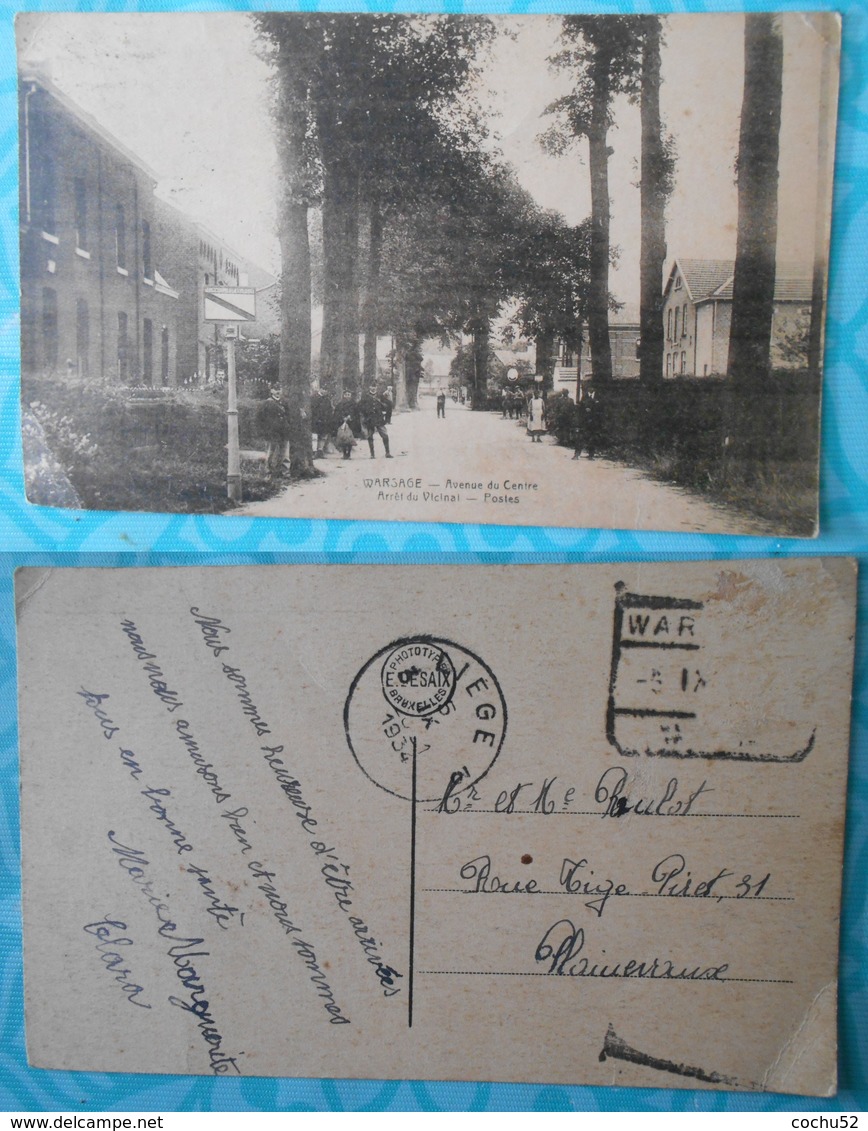 WARSAGE — Avenue du Centre
Arrêt du Vicinal — Postes
Nous sommes heureuse d'être arrivées
nous nous amusons bien et nous sommes
tous en bonne santé
Marie Marguerite
Clara
PHOTOTYPIE
E. DESAIX
BRUXELLES
LIÈGE
1934
WAR
-5 IX
Mr et Me Roulot
Rue Tige Piret, 31
Plainevaux
cochu52